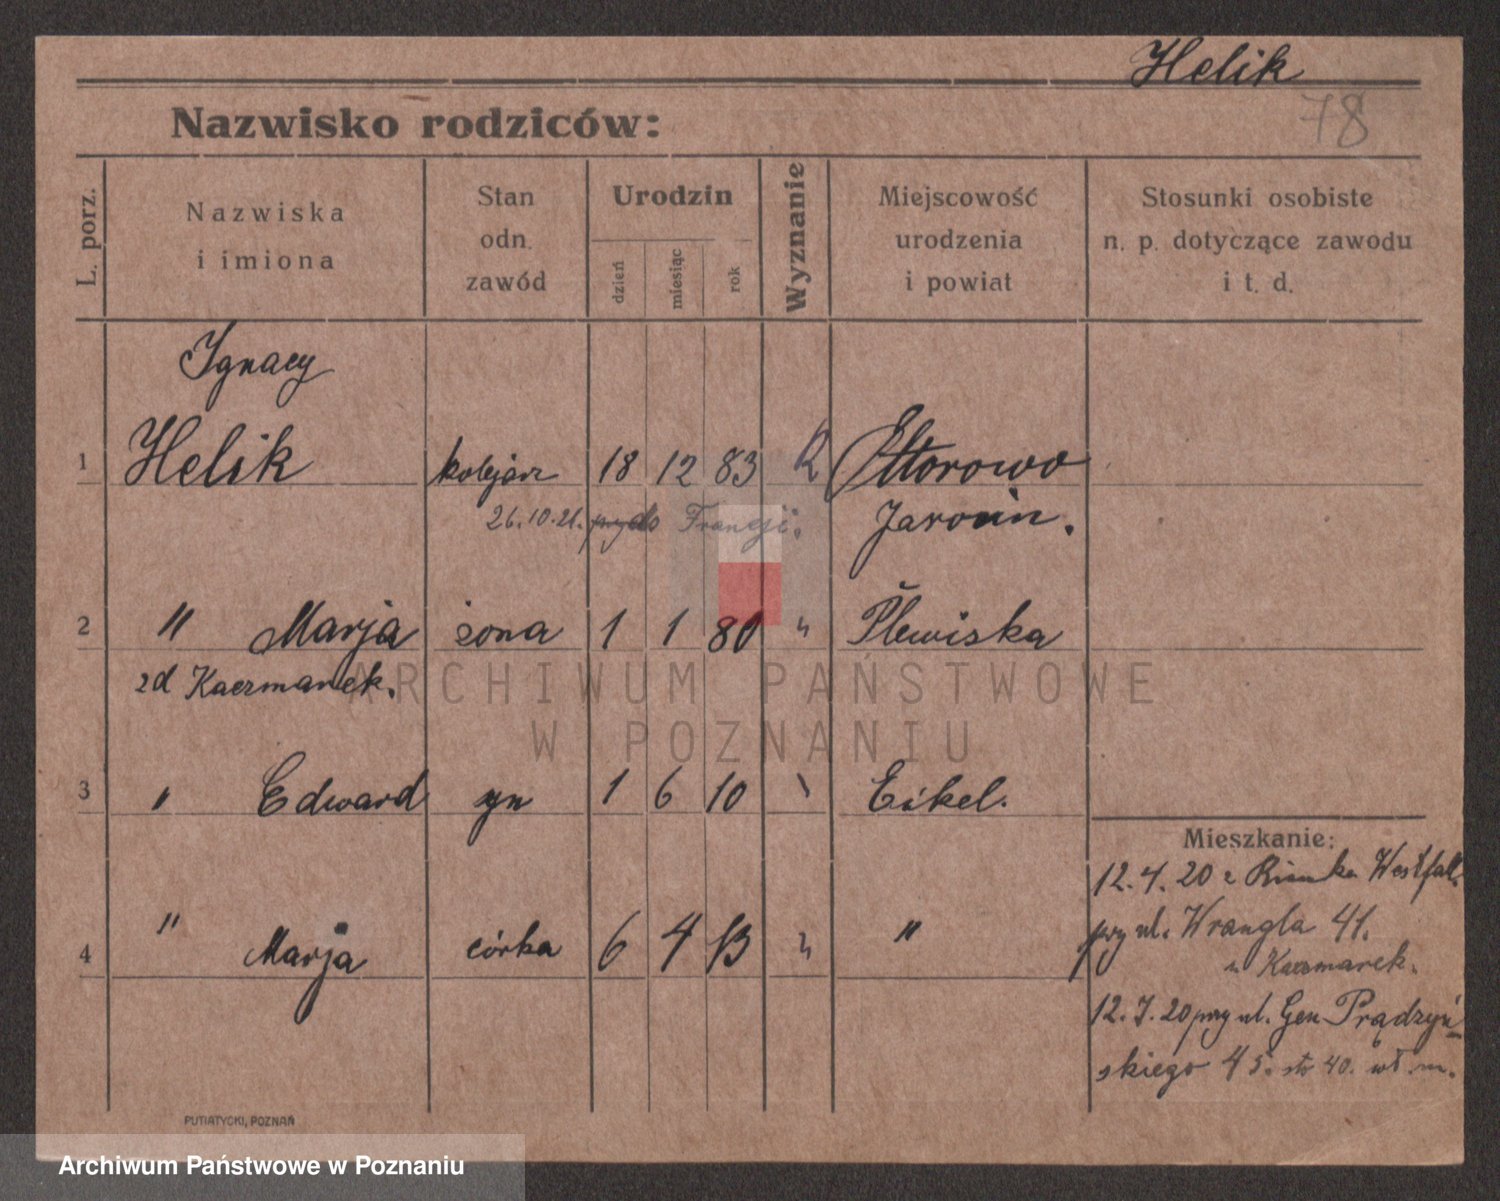 Helik
78
Nazwisko rodziców:
L. porz.
Nazwiska
i imiona
Stan
odn.
zawód
Urodzin
dzień
miesiąc
rok
Wyznanie
Miejscowość
urodzenia
i powiat
Stosunki osobiste
n. p. dotyczące zawodu
i t. d.
Ignacy
1 Helik kolejarz 18 12 83
26.10.21. do Francji. Jarocin.
2 " Marja żona 1 1 80 " Plewiska
zd Kaczmarek.
3 " Edward syn 1 6 10 Eikel.
Mieszkanie:
12.4.20 z Westfal.
4 " Marja córka 6 4 13 " "
przy ul. Wrangla 41.
u Kaczmarek.
12.7.20 przy ul. Gen Prądzyń-
skiego 45. str 40. wł. m.
PUTIATYCKI, POZNAŃ
ARCHIWUM PAŃSTWOWE
W POZNANIU
Archiwum Państwowe w Poznaniu